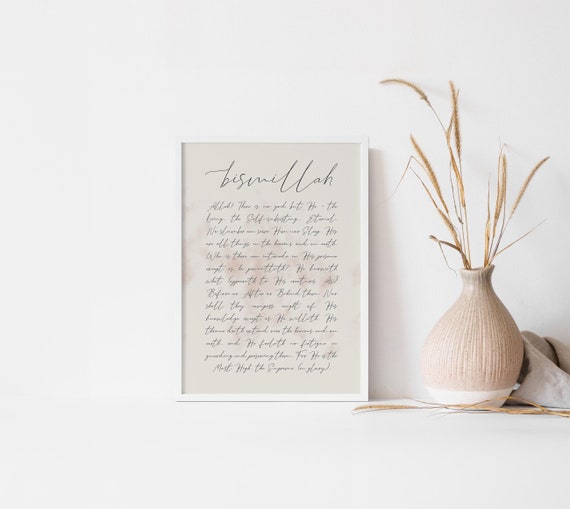 bismillah
Allah! There is no god but He - the
living, the Self-subsisting, Eternal.
No slumber can seize Him nor Sleep. His
are all things in the heavens and on earth.
Who is there can intercede in His presence
except as he permitteth? He knoweth
what (appeareth to His creatures As)
Before or After or Behind them. Nor
shall they compass aught of His
knowledge except as He willeth. His
throne doth extend over the heavens and on
earth, and He feeleth no fatigue in
guarding and preserving them. For He is the
Most High. the Supreme (in glory).